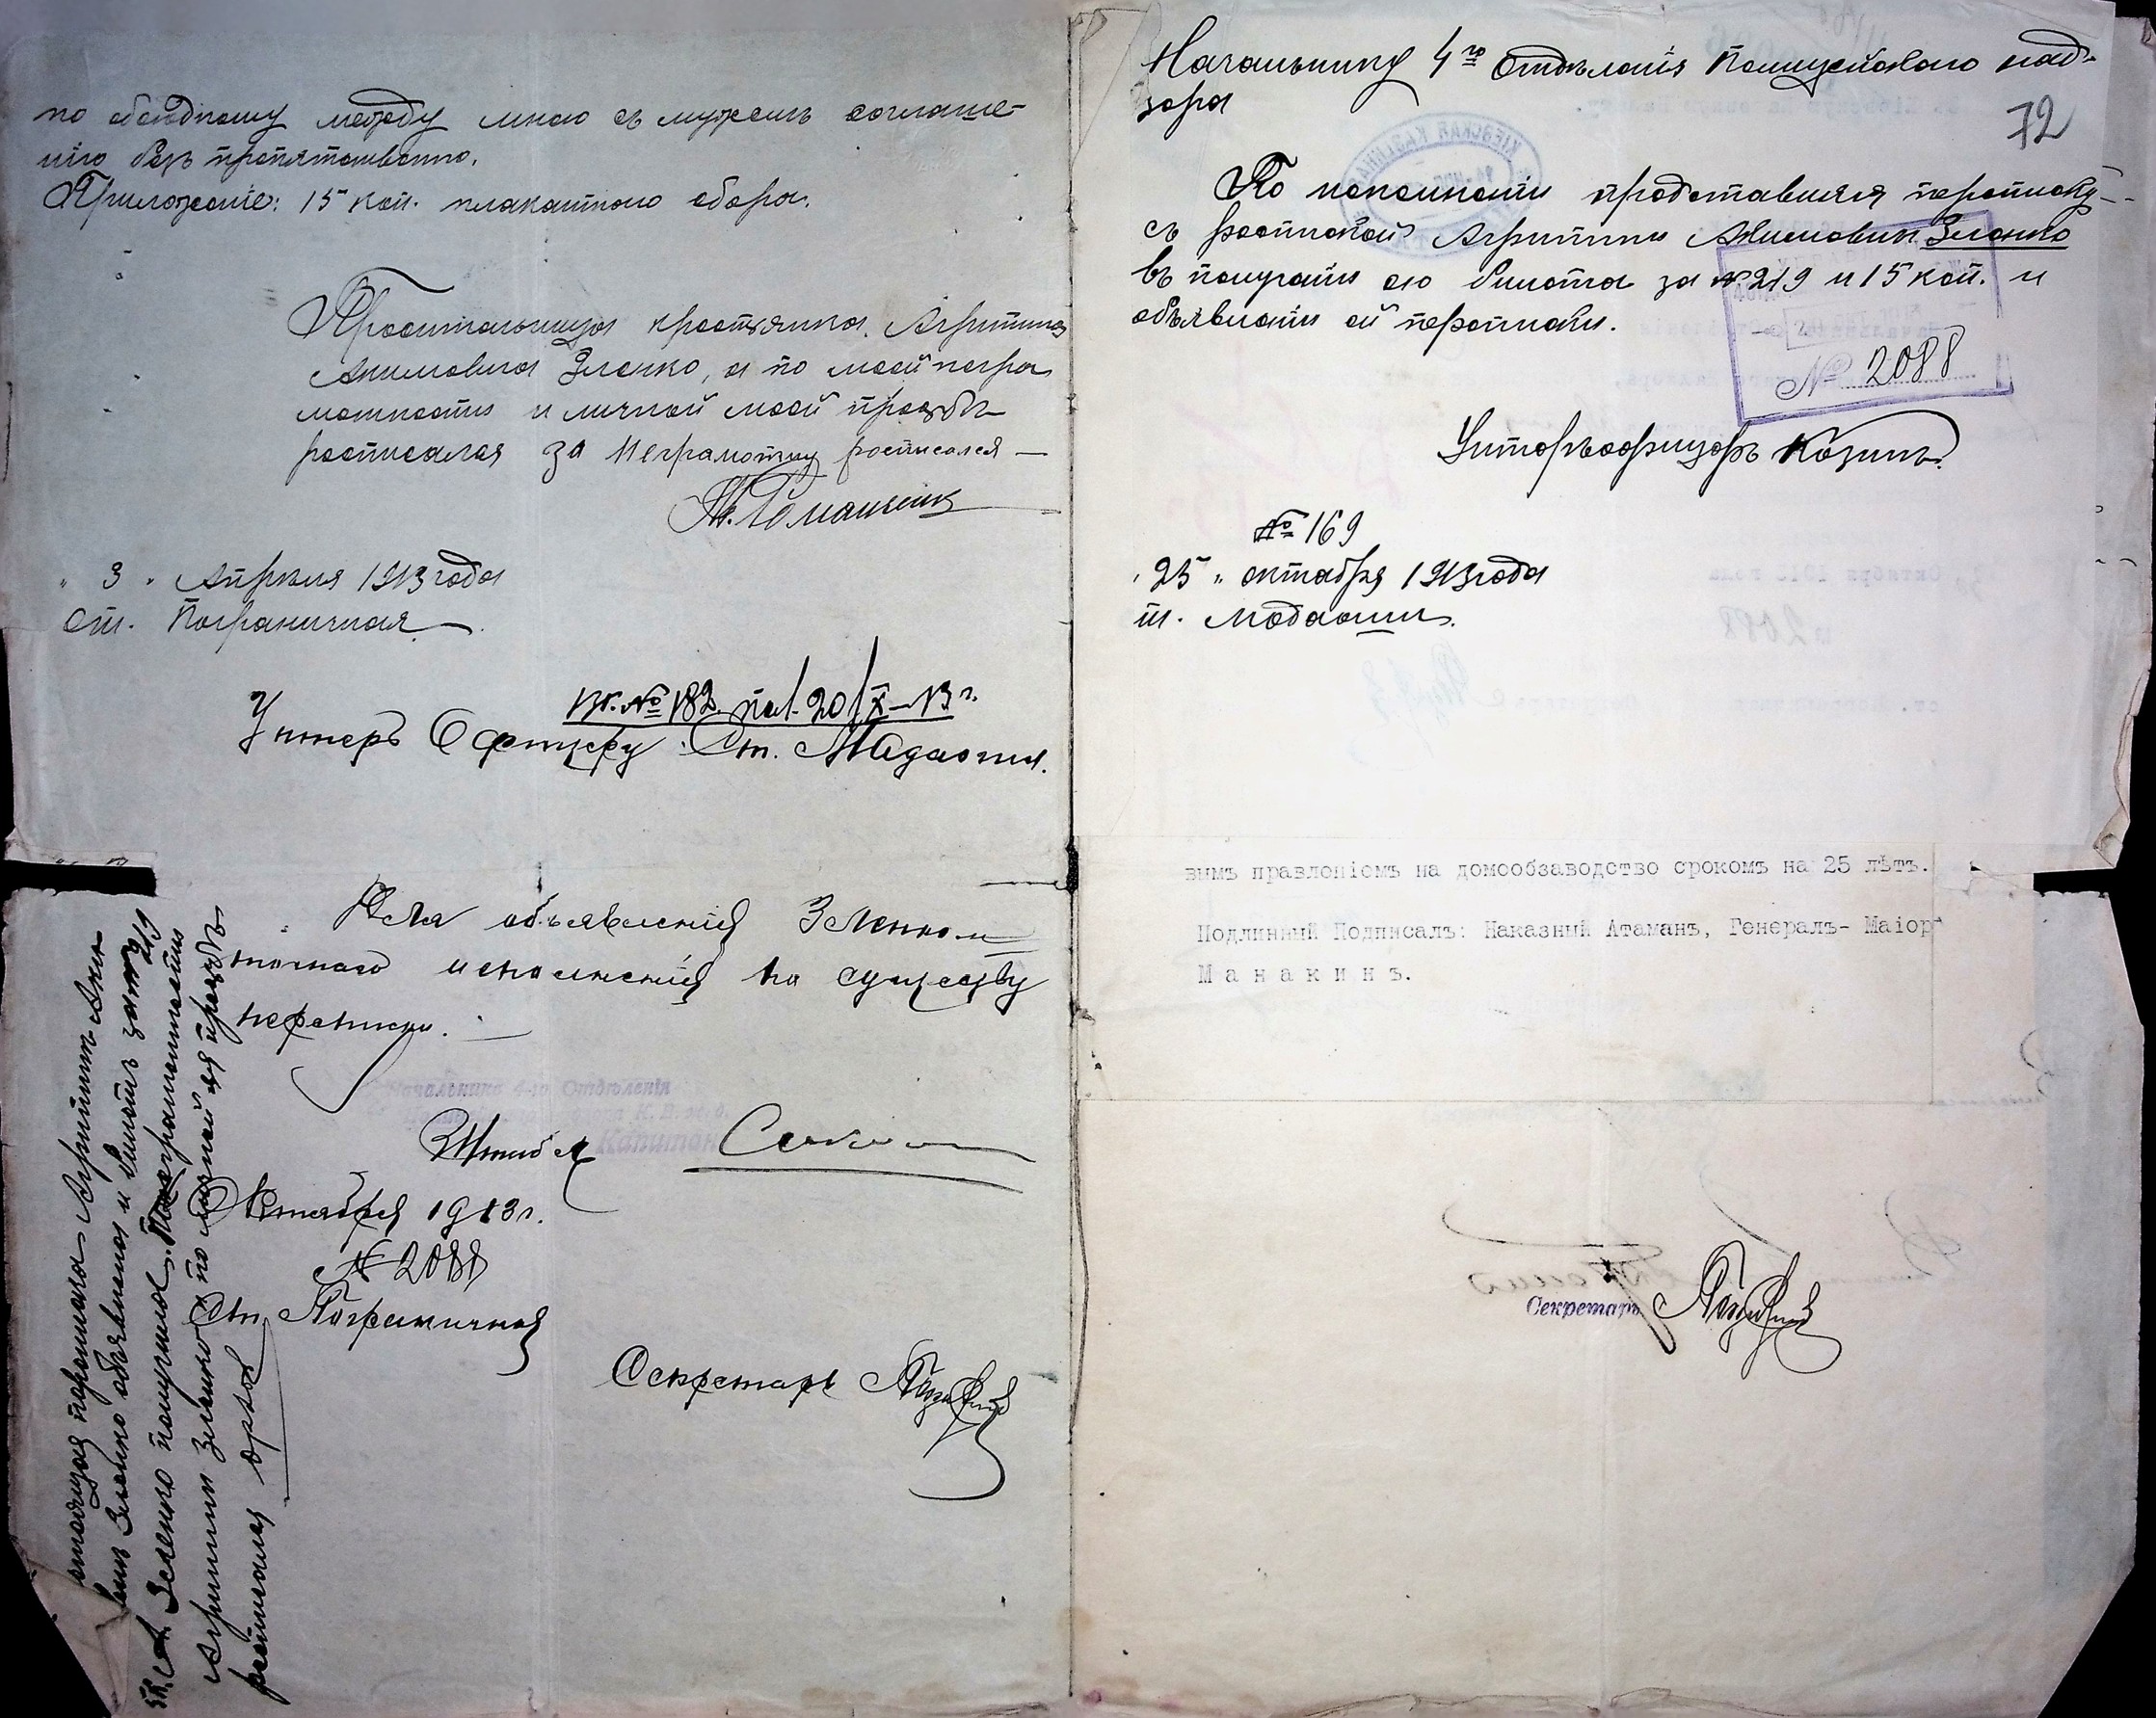 по обоюдному между мною съ мужемъ соглаше-
нію безъ препятственно.
Приложеніе: 15 коп. плакатного сбора.
Просительница крестьянка Агрипина
Акимовна Зленко, а по моей негра
мотности и личной моей просьбѣ
росписался за Неграмотну росписался
" 3 " Апрѣля 1913 года
Ст. Пограничная
вх. № 182 пол. 20/X-13 г.
Унтеръ Офицеру Ст. Модаоши.
Для объявленія Зленко и
точнаго исполненія по существу
переписки.
Начальникъ 4-го Отдѣленія
К. В. ж. д.
Капитан
Октября 1913 г.
№ 2088
Ст. Пограничная
Секретарь
настоящая переписка Агрипинѣ Аки
мовнѣ Зленко объявлена и билетъ за № 219
Зленко получила. Неграмотности
Агрипины Зленко по личной ея просьбѣ
росписался
Начальнику 4го Отдѣленія Полицейскаго над-
зора
72
По исполненіи представляя переписку
съ роспиской Агрипины Акимовны Зленко
въ полученіи ею билета за № 219 и 15 коп. и
объявленіи ей переписки.
№ 2088
Унтеръофицеръ Козинъ.
№ 169
" 25 " октября 1913 года
ст. Модаоши.
вымъ правленіемъ на домообзаводство срокомъ на 25 лѣтъ.
Подлинный Подписалъ: Наказный Атаманъ, Генералъ- Маіоръ
Манакинъ.
Секретарь